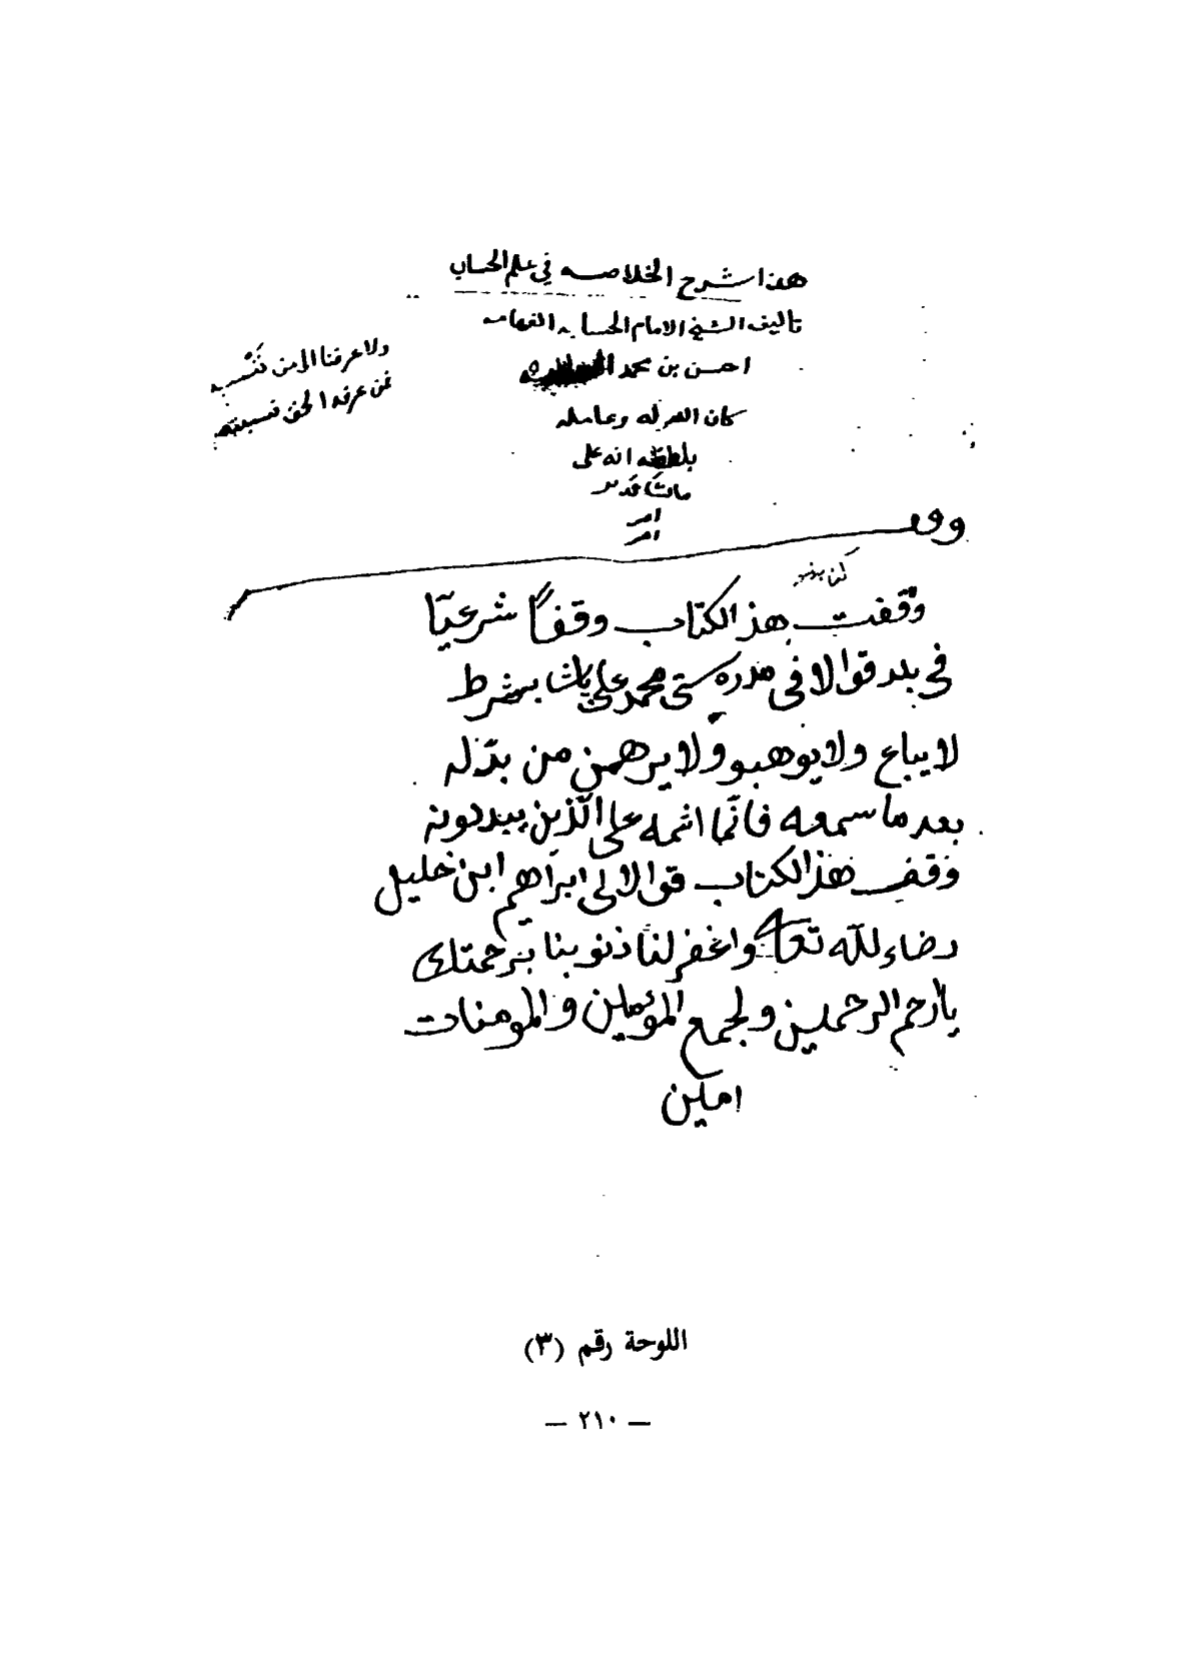 هذا شرح الخلاصه في علم الحساب
تاليف الشيخ الامام الحسابه الفهامه
احسن بن محمد
كان الله له وعامله
بلطفه انه على
مايشا قدير
امر
امر
ولا عرفنا الى من ننسبه
فمن عرفه الحق نسبته
وقف
وقفت هذالكتاب وقفاً شرعيّا
في بلد قوالا في مدره ستى محمد على پاشا بشرط
لا يباع ولا يوهبو ولا يرهمن من بدّله
بعد ما سمعه فانّما اثمه على الّذين يبددونه
وقف هذالكتاب قوالالى ابراهيم ابن خليل
رضاء لله تعالى واغفر لنا ذنوبنا برحمتك
ياأرحم الرحمين ولجمع المؤمنين والمومنات
امين
اللوحة رقم (٣)
— ٢١٠ —